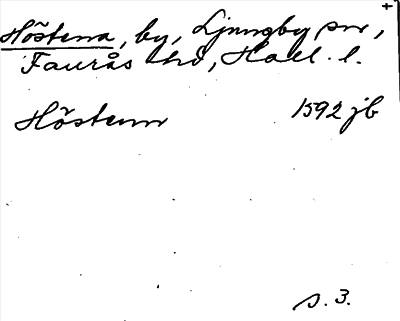 Höstena, by, Ljungby sn,
Faurås hd, Hall. l.
Höstenn 1592 jb
s. 3.